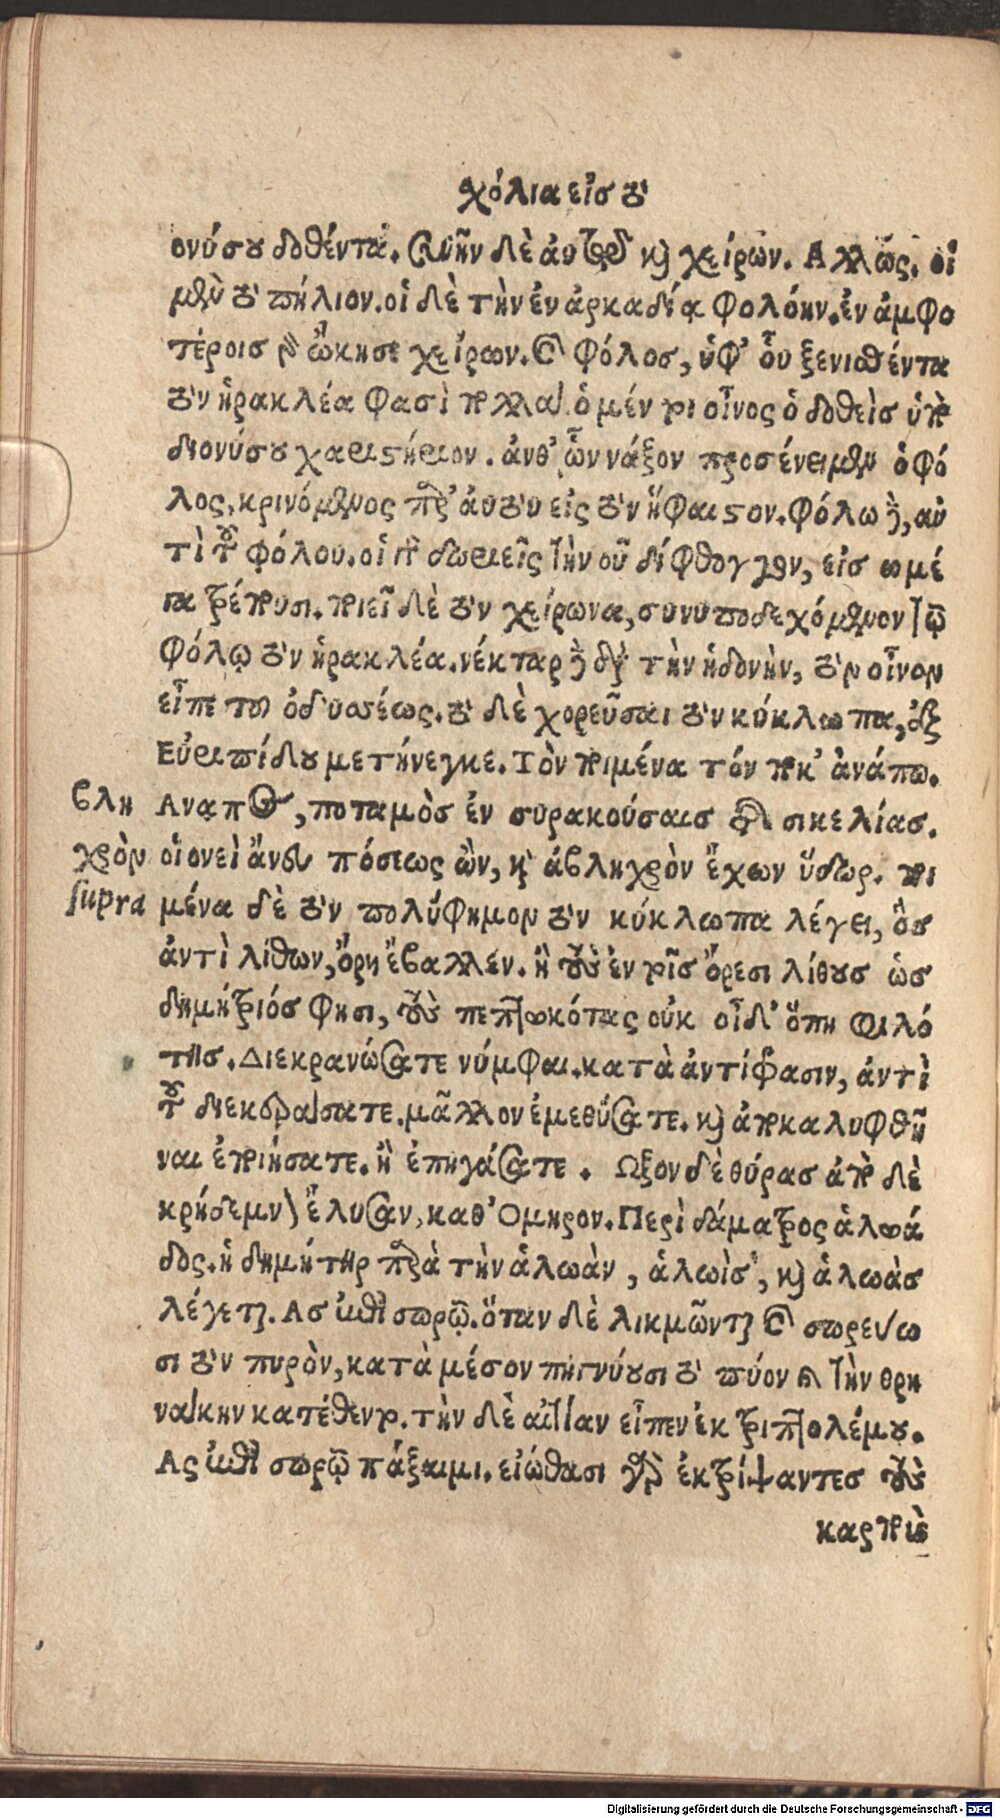 χόλια εἰσ τὸ
ονύσου δοθέντα. συνῆν δὲ ἀυτῷ καὶ χείρων. Αλλως. οἱ
μὲν τὸ πήλιον. οἱ δὲ τὴν ἐν ἀρκαδία φολόην. ἐν ἀμφο
τέροισ γὰρ ᾤκησε χείρων. ὁ φόλοσ, ὑφ' οὗ ξενισθέντα
τὸν ἡρακλέα φασὶ πολλαὶ. ὁ μέντοι οἶνος ὁ δοθεὶσ ὑπὸ
διονύσου χαριστήριον. ἀνθ' ὧν νάξον προσένειμεν ὁ φό
λος, κρινόμενος πρὸς ἀυτὸν εἰς τὸν ἥφαιστον. φόλω δὲ, αν
τὶ τοῦ φόλου. οἱ γὰρ δωριεῖς τὴν ου δίφθογγον, εἰσ ω μέ
γα τρέπουσι. ποιεῖ δὲ τὸν χείρωνα, συνυποδεχόμενον τῷ
φόλῳ τὸν ἡρακλέα. νέκταρ δὲ διὰ τὴν ἡδονὴν, τὸν οἶνον
εἶπε τοῦ ὀδυσέως. τὸ δὲ χορεῦσαι τὸν κύκλωπα, ἐξ
Εὐριπίδου μετήνεγκε. Τὸν ποιμένα τόν ποκ' ἀνάπω.
βλη Αναπος, ποταμὸσ ἐν συρακούσαισ τῆς σικελίασ.
χρὸν οἱονεὶ ἄνευ πόσεως ὢν, καὶ ἀβληχρὸν ἔχων ὕδωρ. ποι
supra μένα δὲ τὸν πολύφημον τὸν κύκλωπα λέγει, ὃσ
ἀντὶ λίθων, ὄρη ἔβαλλεν. ἢ τοὺς ἐν τοῖσ ὄρεσι λίθουσ ὡσ
δημήτριόσ φησι, τοὺς πεπτωκότας οὐκ οἶδ' ὅπη φιλό
τησ. Διεκρανώσατε νύμφαι. κατὰ ἀντίφασιν, ἀντὶ
τοῦ διεκεράσατε. μᾶλλον ἐμεθύσατε. καὶ ἀποκαλυφθῆ
ναι ἐποιήσατε. ἢ ἐπηγάσατε. Ωξον δὲ θύρασ ἀπὸ δὲ
κρήδεμνον ἔλυσαν, καθ' Ομηρον. Περὶ δάματρος ἁλωά
δος. ἡ δημήτηρ παρὰ τὴν ἁλωὰν, ἁλωὶσ, καὶ ἁλωὰσ
λέγεται. Ασ ἐπὶ σωρῷ. ὅταν δὲ λικμῶνται καὶ σωρεύω
σι τὸν πυρὸν, κατὰ μέσον πηγνύουσι τὸ πτύον καὶ τὴν θρη
νάκην κατέθεντο. τὴν δὲ αἰτίαν εἶπεν ἐκ τριπτολέμου.
Ας ἐπὶ σωρῷ πάξαιμι. εἰώθασι γὰρ ἐκτρίψαντεσ τοὺς
καρποὺς